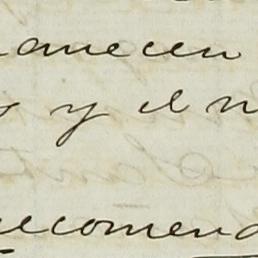 anecen
y el n
recomend